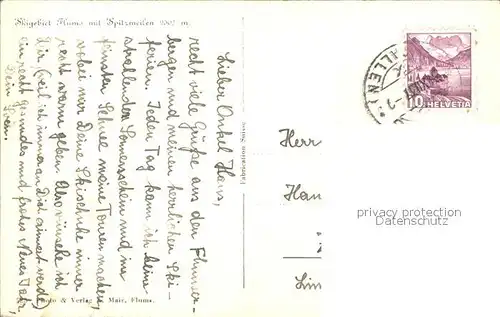 Skigebiet Flums mit Spitzmeilen 2507 m.
Lieber Onkel Hans,
recht viele Grüße aus den Flumser-
bergen und meinen herrlichen Ski-
ferien. Jeden Tag kann ich bei
strahlendem Sonnenschein und im
feinsten Schnee meine Touren machen,
wobei mir Deine Skischuhe immer
recht warm geben. Also wünsche ich
Dir (weil ich immer an Dich erinnert werde)
ein recht gesundes und frohes Neues Jahr,
Dein
Photo & Verlag Mair, Flums.
Fabrication Suisse
10 HELVETIA
Herr
Han
Lin
privacy protection
Datenschutz